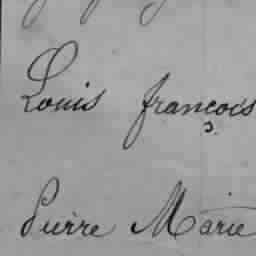 Louis françois
Pierre Marie